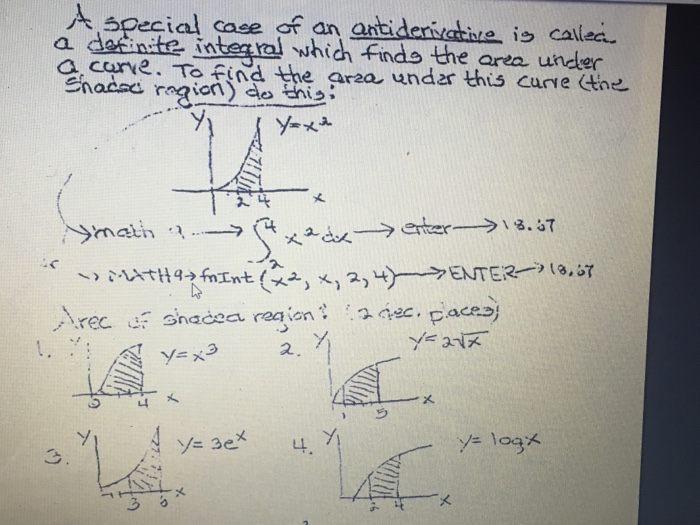 A special case of an antiderivative is called
a definite integral which finds the area under
a curve. To find the area under this curve (the
shaded region) do this:
y
y=x²
2 4 x
→math 9 → ∫₂⁴ x² dx → enter → 18.67
or → MATH 9 → fnInt (x², x, 2, 4) → ENTER → 18.67
Area of shaded region? (2 dec. places)
1. y y=x³ 2. y y=2√x
4 x 1 5 x
3. y y=3eˣ 4. y y=logx
3 x 2 4 x